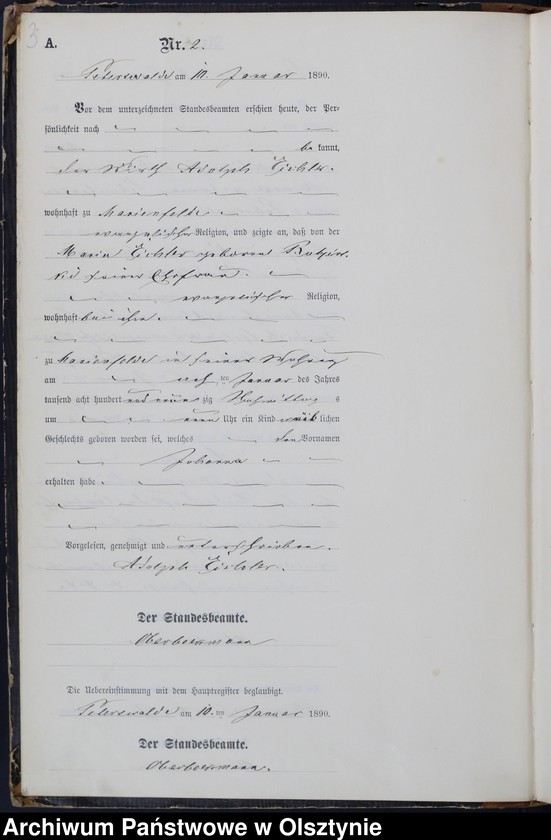 3
A. Nr. 2.
Peterswalde am 10. Januar 1890.
Vor dem unterzeichneten Standesbeamten erschien heute, der Per-
sönlichkeit nach
be kannt,
der Wirth Adolph
wohnhaft zu Marienfelde
evangelischer Religion, und zeigte an, daß von der
Maria geborenen
seiner Ehefrau
evangelischer Religion,
wohnhaft bei ihm
zu Marienfelde in seiner Wohnung
am ten Januar des Jahres
tausend acht hundert und neun zig Nachmittag s
um neun Uhr ein Kind weib lichen
Geschlechts geboren worden sei, welches den Vornamen
Johanna
erhalten habe.
Vorgelesen, genehmigt und unterschrieben.
Adolph
Der Standesbeamte.
Die Uebereinstimmung mit dem Hauptregister beglaubigt.
Peterswalde am 10. ten Januar 1890.
Der Standesbeamte.
Archiwum Państwowe w Olsztynie